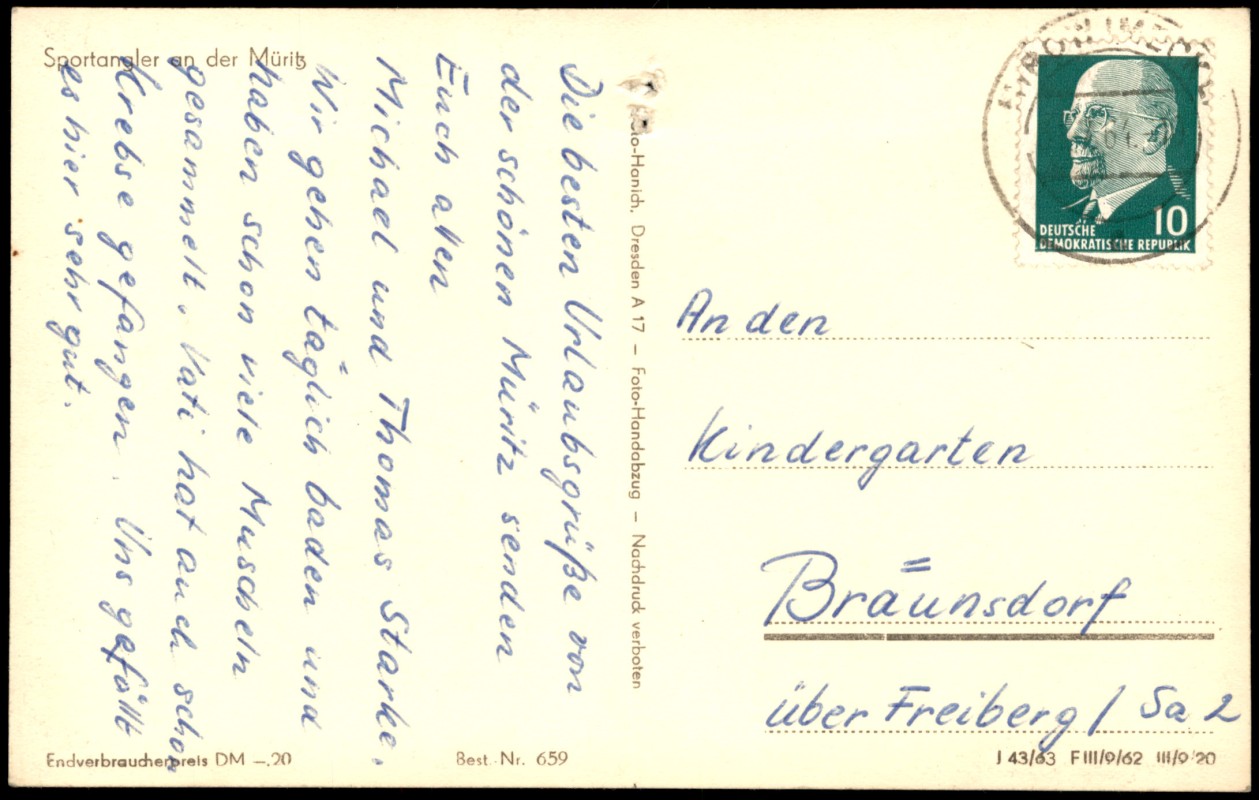 Sportangler an der Müritz
Die besten Urlaubsgrüße von
der schönen Müritz senden
Euch allen
Michael und Thomas Starke.
Wir gehen täglich baden und
haben schon viele Muscheln
gesammelt. Vati hat auch schon
Krebse gefangen. Uns gefällt
es hier sehr gut.
Endverbraucherpreis DM –.20
Best. Nr. 659
Hanich, Dresden A 17 – Foto-Handabzug – Nachdruck verboten
DEUTSCHE 10
DEMOKRATISCHE REPUBLIK
An den
Kindergarten
Bräunsdorf
über Freiberg / Sa 2
J 43/63 F III/9/62 III/9/20